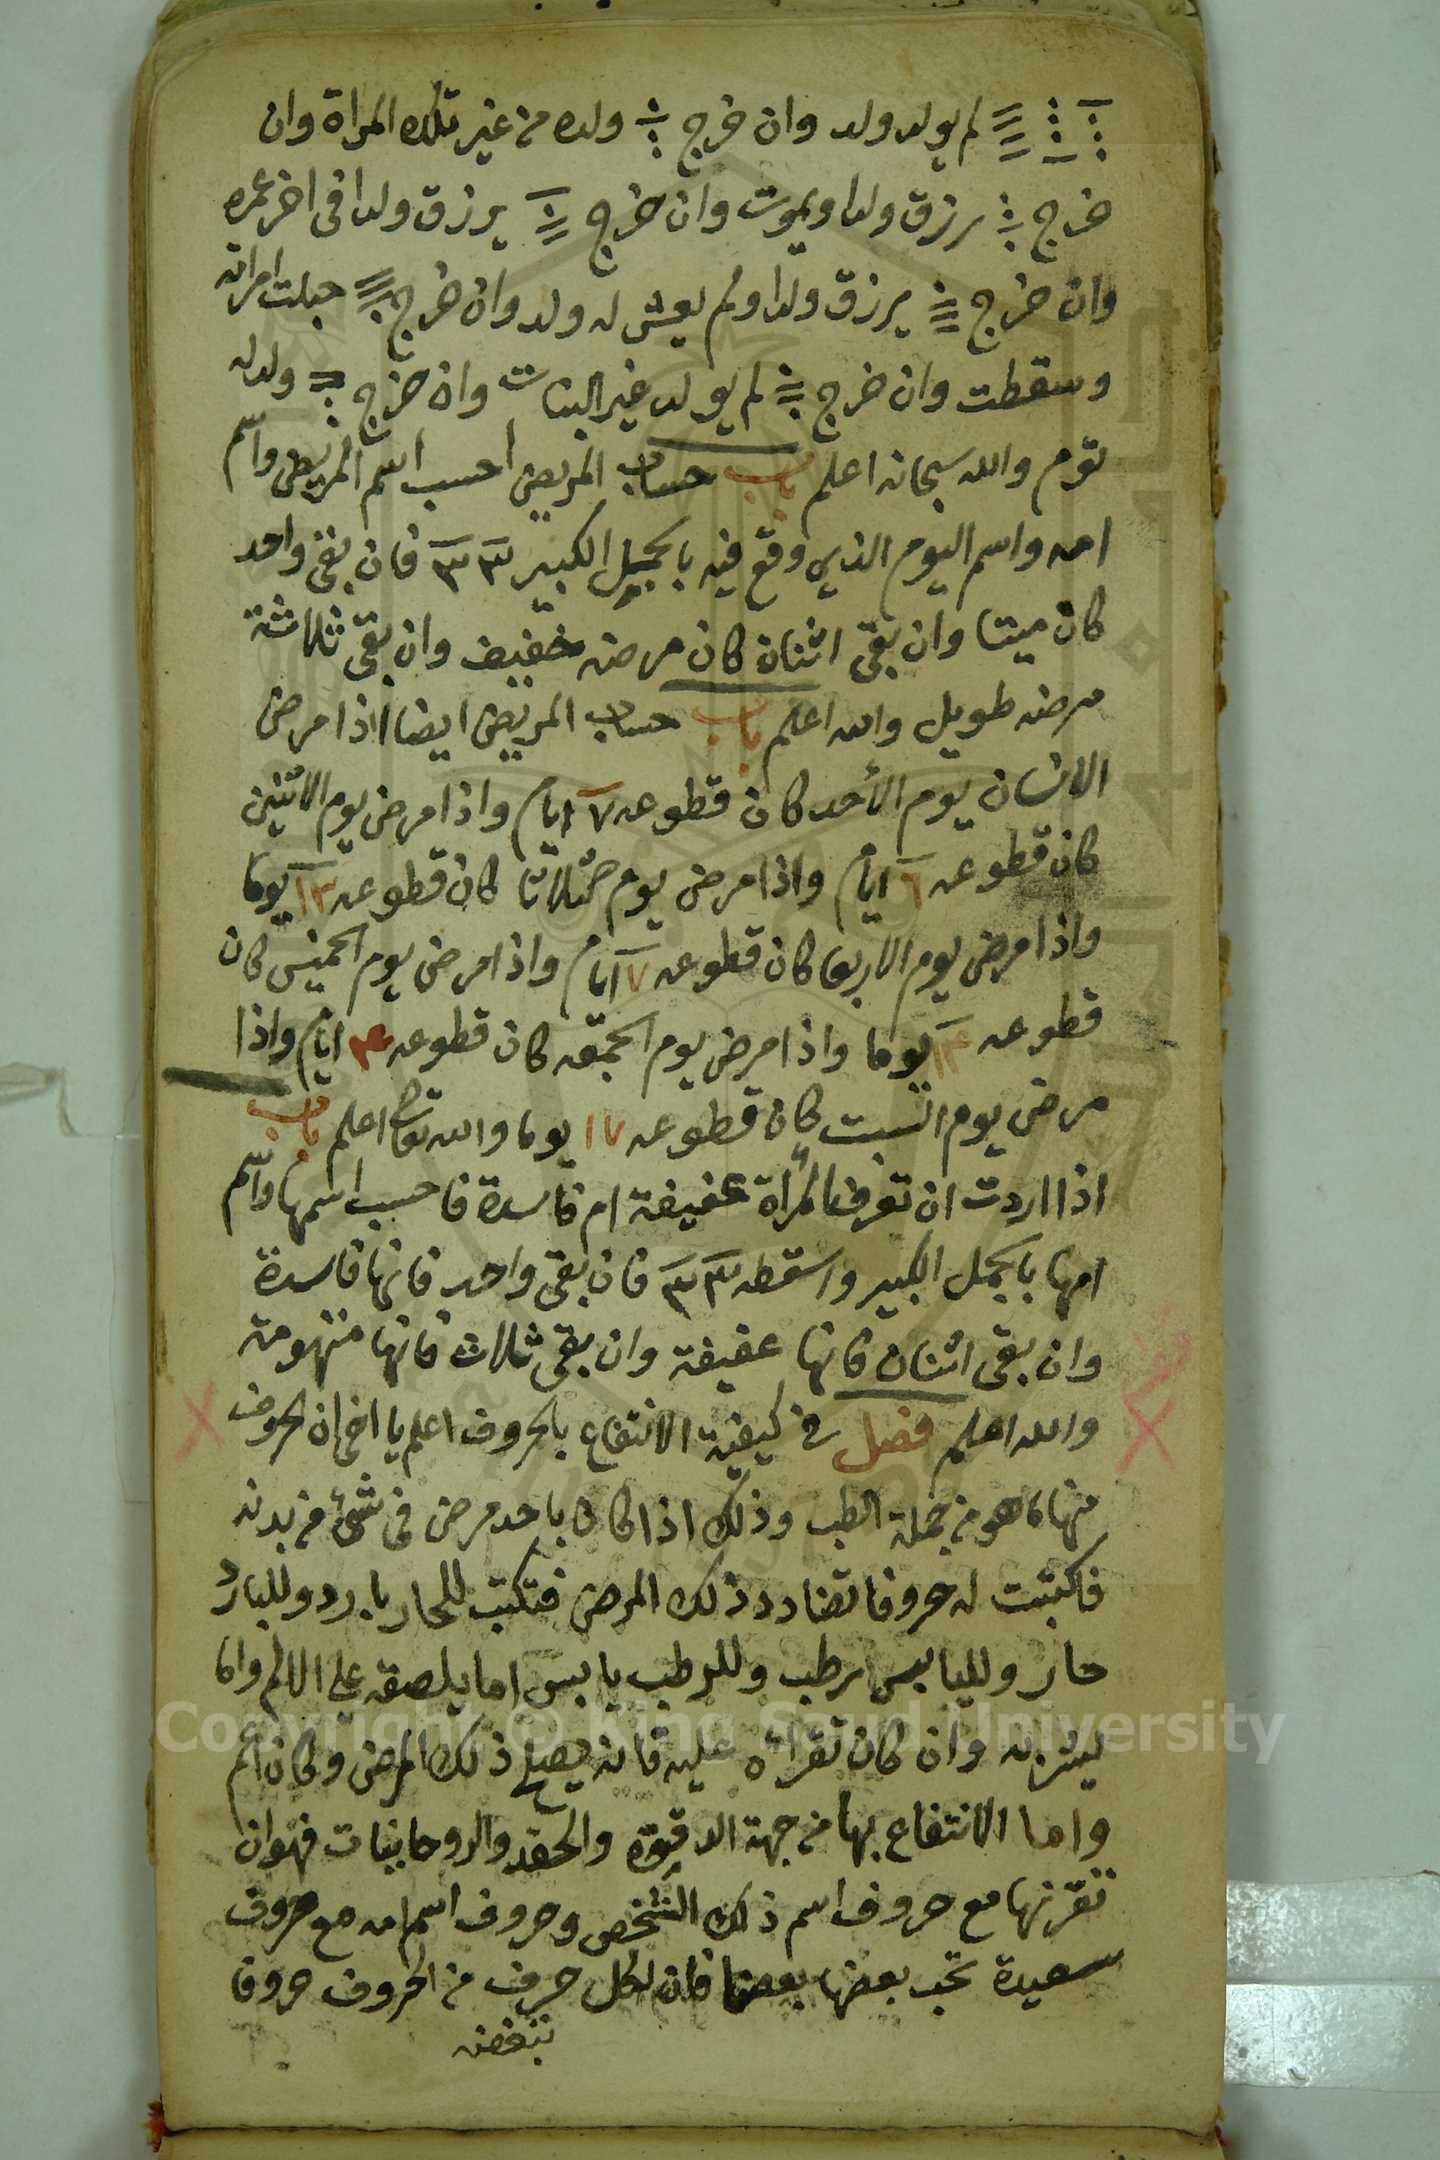 لم يولد ولد وان خرج ولده من غير تلك المراة وان
خرج يرزق ولدا ويموت وان خرج يرزق ولدا في اخر عمره
وان خرج يرزق ولدا ولم يعش له ولد وان خرج حبلت امراته
وسقطت وان خرج لم يولد غير البنات وان خرج ولد له
توم والله سبحانه اعلم باب حساب المريض احسب اسم المريض واسم
امه واسم اليوم الذي وقع فيه بالجميل الكبير ٣٣ فان بقي واحد
كان ميتا وان بقي اثنان كان مرضه خفيف وان بقي ثلاثة
مرضه طويل والله اعلم باب حساب المريض ايضا اذا مرض
الانسان يوم الأحد كان قطوعه ٧ ايام واذا مرض يوم الاثنين
كان قطوعه ٦ ايام واذا مرض يوم كان قطوعه ١٣ يوما
واذا مرض يوم الاربعا كان قطوعه ٧ ايام واذا مرض يوم الخميس كان
قطوعه يوما واذا مرض يوم الجمعه كان قطوعه ٣ ايام واذا
مرض يوم السبت كان قطوعه ١٧ يوما والله تعالى اعلم باب
اذا اردت ان تعرف المرأة عفيفة ام فاسدة فاحسب اسمها واسم
امها بالجمل الكبير واسقطه ٣٣ فان بقي واحد فانها فاسدة
وان بقي اثنان فانها عفيفة وان بقي ثلاث فانها متهومة
والله اعلم فصل في كيفية الانتفاع بالحروف اعلم يا اخي ان الحروف
منها ما هو من جملة الطب وذلك اذا كان باحد مرض في شئ من بدنه
فاكتبت له حروفا تضادد ذلك المرض فتكتب للحار بارد وللبارد
حار ولليابس رطب وللرطب يابس اما يلصقه على الالم واما
ليشربه وان كان تقراه عليه فانه ذلك المرض وكان اعم
واما الانتفاع بها من جهة والعقد والروحانيات فهو ان
تقرنها مع حروف اسم ذلك الشخص وحروف اسم امه مع حروف
سعيدة تحب بعضها بعضا فان لكل حرف من الحروف حروفا
تبغضه
Copyright © King Saud University